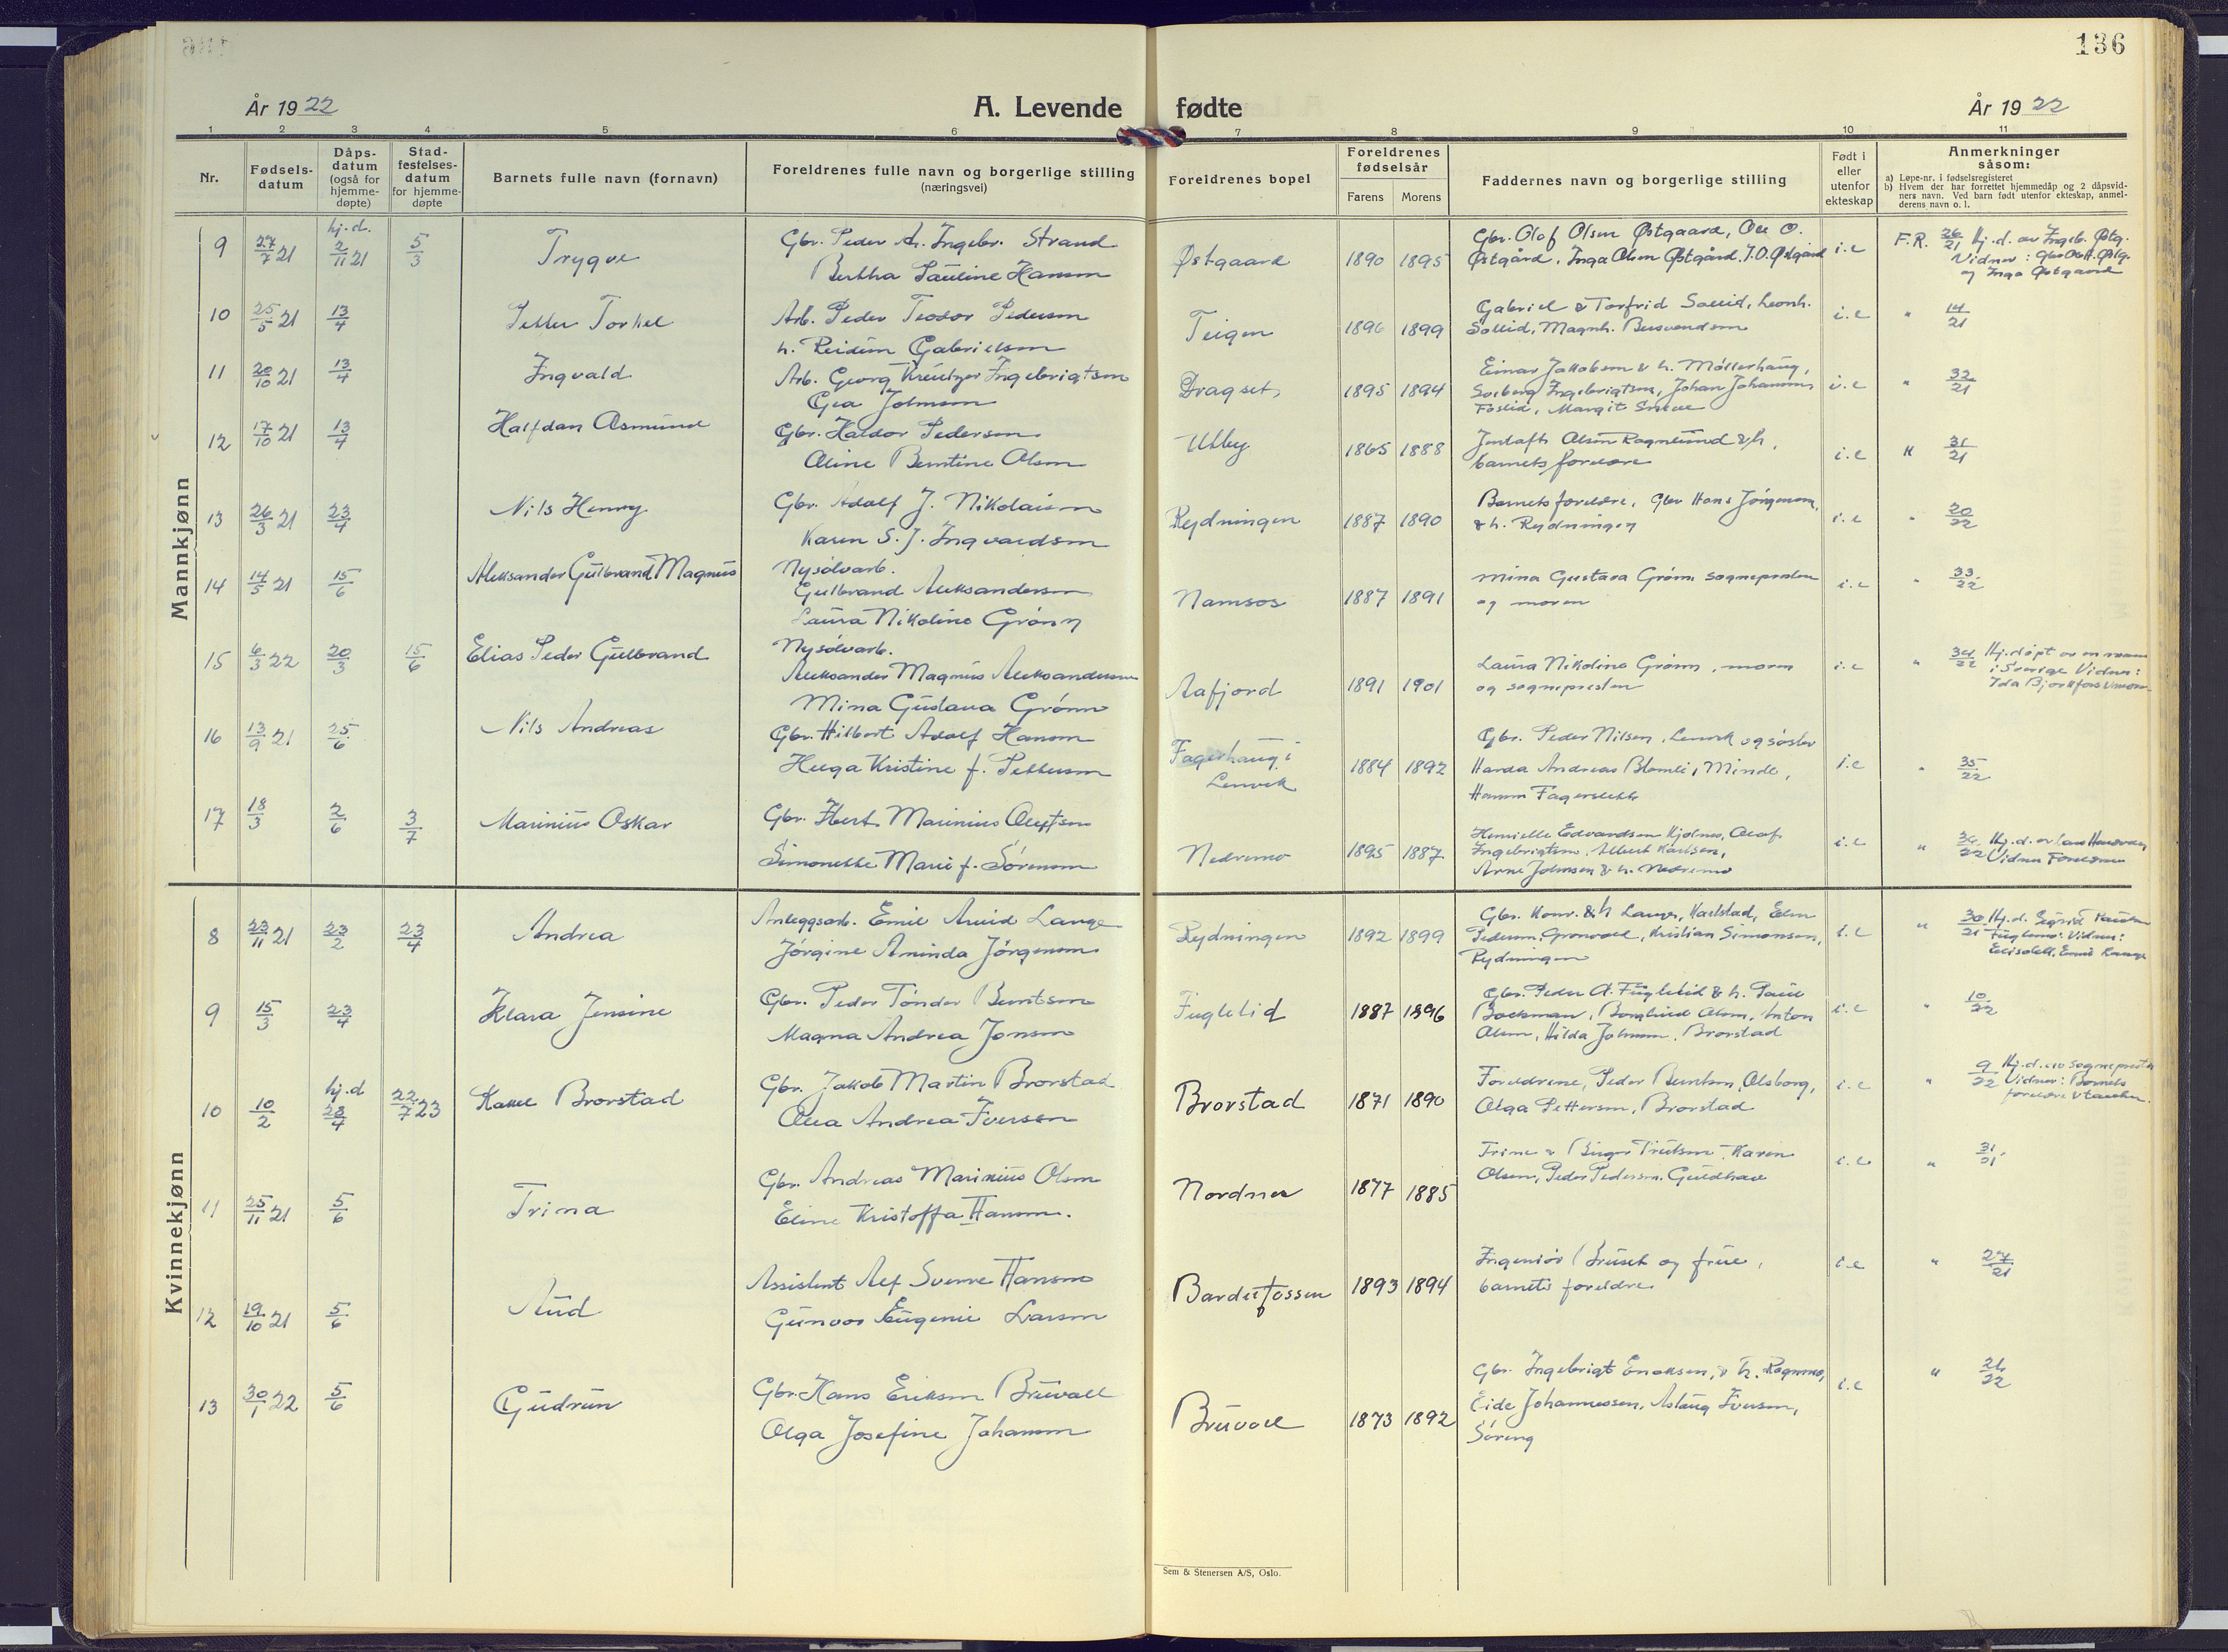 136
År 1922
A. Levende fødte
År 1922
1 2 3 4 5 6 7 8 9 10 11
Nr.
Fødsels-
datum
Dåps-
datum
(også for
hjemme-
døpte)
Stad-
festelses-
datum
for hjemme-
døpte
Barnets fulle navn (fornavn)
Foreldrenes fulle navn og borgerlige stilling
(næringsvei)
Foreldrenes bopel
Foreldrenes
fødselsår
Farens Morens
Faddernes navn og borgerlige stilling
Født i
eller
utenfor
ekteskap
Anmerkninger
såsom:
a) Løpe-nr. i fødselsregisteret
b) Hvem der har forrettet hjemmedåp og 2 dåpsvid-
ners navn. Ved barn født utenfor ekteskap, anmel-
derens navn o. l.
Mannkjønn
9 27/7 21 hj.d. 2/11 21 5/3 Trygve
Gbr. Peder A. Ingebr. Strand
Bertha Pauline Hansen
Østgaard 1890 1895
Gbr. Olof Olsen Østgaard, Ole O.
Østgård, Inga Olsen Østgård, J.O. Østgård
i.e F.R. 26/21 Hj.d. av Ingeb. Østg.
Vidner:
og Inga Østgaard
10 25/5 21 13/4 Petter Torkel
Arb. Peder Teodor Pedersen
h. Reidun Gabrielsen
Teigen 1896 1899
Gabriel & Torfrid Sollid, Leonh.
Sollid, Magnh.
i.e " 14/21
11 20/10 21 13/4 Ingvald
Arb. Georg Kreutzer Ingebrigtsen
Gea Johnsen
Dragset 1895 1894
Einar Jakobsen & h. Møllerhaug,
Solberg Ingebrigtsen, Johan Johansen
Foslid, Margit
i.e " 32/21
12 17/10 21 13/4 Halfdan Asmund
Gbr. Haldor Pedersen
Aline Berntine Olsen
Utby 1865 1888
Olsen Ragnlund & h,
barnets foreldre
i.e " 31/21
13 26/3 21 23/4 Nils Henry
Gbr. Adolf J. Nikolaisen
Karen S. J. Ingvaldsen
Rydningen 1887 1890
Barnets foreldre, Gbr Hans Jörgensen,
& h. Rydningen
i.e " 20/22
14 14/5 21 15/6 Aleksander Gulbrand Magnus
Nysølvarb.
Gulbrand Aleksandersen
Laura Nikoline Grønn
Namsos 1887 1891
Mina Gustava Grønn sognepresten
og moren
i.e " 33/22
15 6/3 22 20/3 15/6 Elias Peder Gulbrand
Nysølvarb.
Aleksander Magnus Aleksandersen
Mina Gustava Grønn
Aafjord 1891 1901
Laura Nikoline Grønn, moren
og sognepresten
i.e " 34/22 Hj.døpt av en mann
i Sverige Vidner:
Ida Bjorkfors
16 13/9 21 25/6 Nils Andreas
Gbr. Hilbert Adolf Hansen
Helga Kristine f. Pettersen
Fagerhaug i
Lenvik
1884 1892
Gbr. Peder Nilsen, Lenvik og søster
Harda Andreas Blomli, Minde,
Hansen Fagerslett
i.e " 35/22
17 18/3 2/6 3/7 Marinius Oskar
Gbr. Ebert Marinius Olufsen
Simonette Marie f. Sørensen
Nedremo 1895 1887
Henriette Edvardsen Kjølmo, Olaf
Ingebrigtsen, Albert Karlsen,
Arne Johnsen & h. Nedremo
i.e " Hj.d. av
Vidner Foreldrene
Kvinnekjønn
8 23/11 21 23/2 23/4 Andrea
Anleggsarb. Emil Arvid Lange
Jörgine Aminda Jörgensen
Rydningen 1892 1899
Gbr. Konr. & h Langes, Karlstad, Elen
Pedersen, Grønvoll, Kristian Simonsen,
Rydningen
i.e " 30/21 Hj.d. Sigrid
Vidner:
Elisabeth, Emil Lange
9 15/3 23/4 Klara Jensine
Gbr. Peder Tönder Berntsen
Magna Andrea Jonsen
Fuglelid 1887 1896
Gbr. Peder A. Fuglelid & h. Paul
Bockman, Borghild Olsen, Anton
Olsen, Hilda Johnsen, Brorstad
i.e " 10/22
10 10/2 hj.d 28/4 22/7 23 Kamel Brorstad
Gbr. Jakob Martin Brorstad
Olea Andrea Iversen
Brorstad 1871 1890
Foreldrene, Peder Berntsen, Olsborg,
Olga Pettersen, Brorstad
i.e " 9/22 Hj.d. av sognepresten
Vidner: Barnets
foreldre
11 25/11 21 5/6 Trina
Gbr. Andreas Marinius Olsen
Eline Kristoffa Hansen.
Nordmo 1877 1885
Trine & Birger Trulsen, Karen
Olsen, Peder Pedersen, Guldhav
i.e " 31/21
12 19/10 21 5/6 Aud
Assistent Alf Sverre Hansen
Gunvor Eugenie Larsen
Bardufossen 1893 1894
Ingeniör Bruset og frue,
barnets foreldre
i.e " 27/21
13 30/1 22 5/6 Gudrun
Gbr. Hans Eriksen Bruvoll
Olga Josefine Johansen
Bruvoll 1873 1892
Gbr. Ingebrigt Enoksen, & h. Rognmo,
Eide Johannessen, Aslaug Iversen,
Søreng
i.e " 26/22
Sem & Stenersen A/S, Oslo.